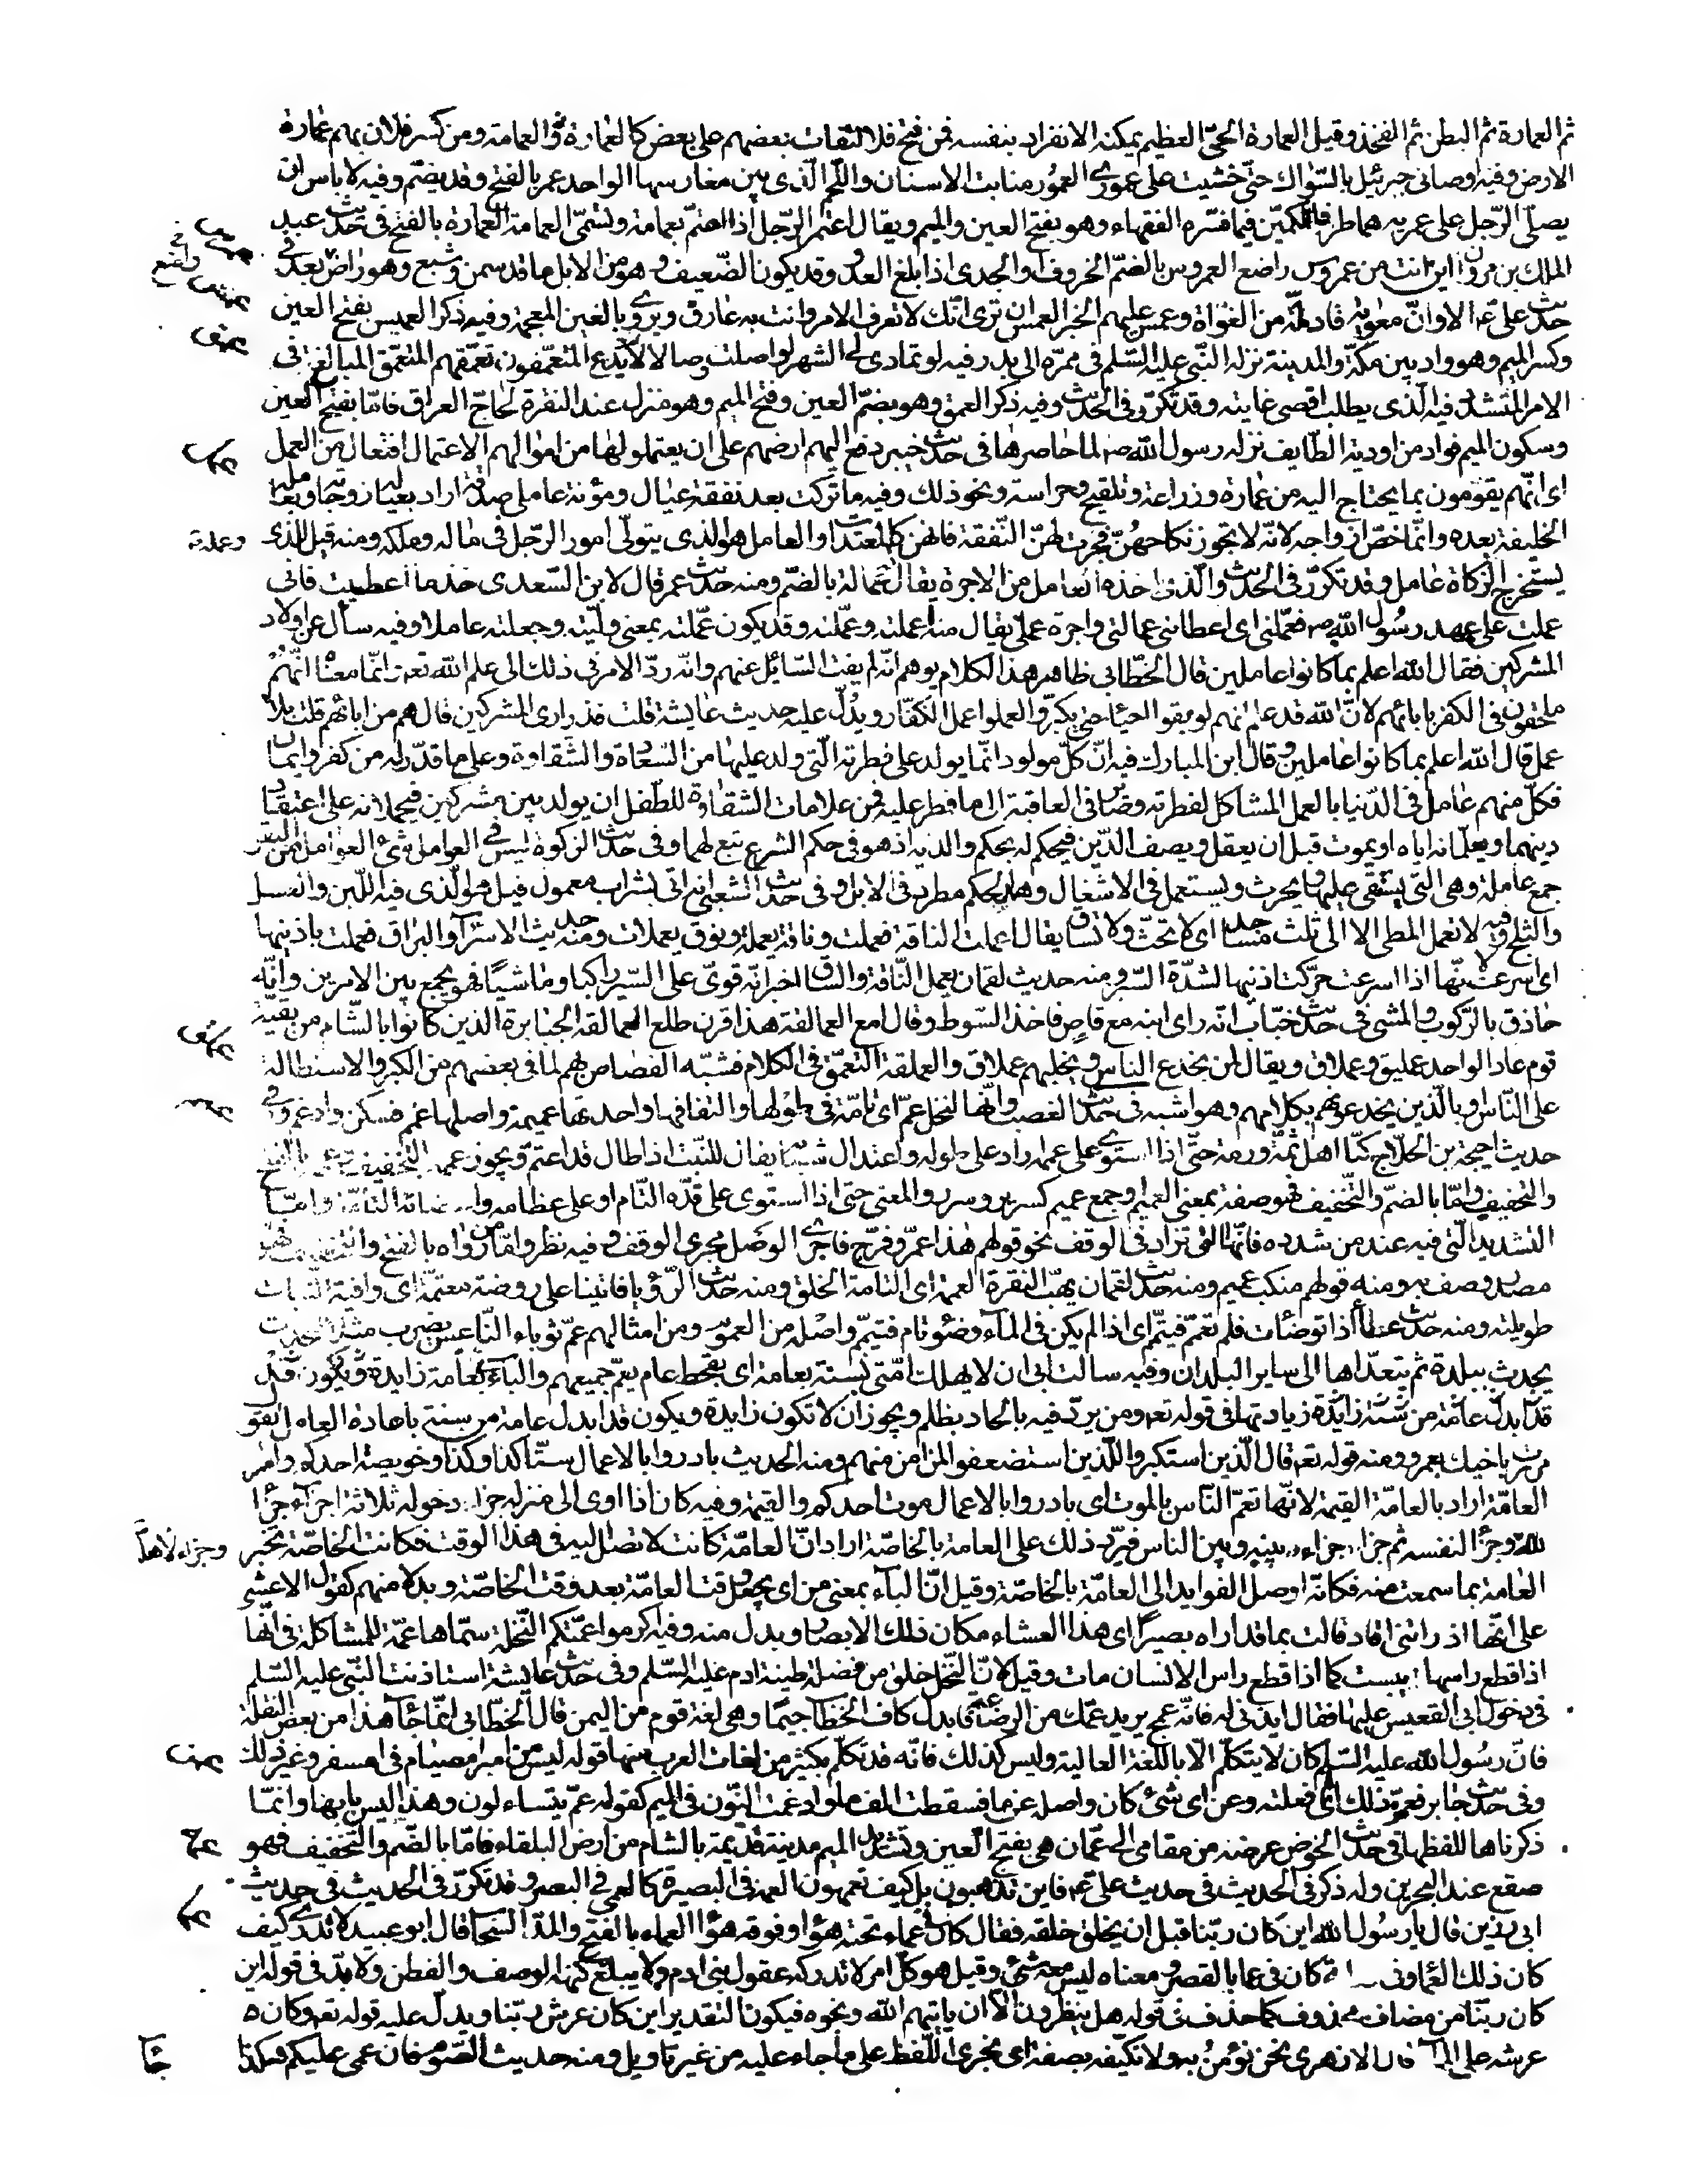 ثم العمارة ثم البطن ثم الفخذ وقيل العمارة الحيّ العظيم يمكنه الانفراد بنفسه فمن فتح فلالتفات بعضهم على بعض كالعمارة والعمامة ومن كسر فلان بهم عمارة
الارض وفيه اوصانى جبرئيل بالسّواك حتّى خشيت على عمورى العمور منابت الاسنان واللّحم الّذى بين مغارسها الواحد عمر بالفتح وقد يضمّ وفيه لا باس ان
يصلّى الرّجل على عمريه هما طرفا الكمّين فيما فسّره الفقهاء وهو بفتح العين والميم ويقال اعتمر الرّجل اذا اعتمّ بعمامة وتسمّى العمامة العمارة بالفتح فى حديث عبد
الملك بن مروان اين انت من عمروس راضع العمروس بالضمّ الخروف او الجدى اذا بلغ العدو وقد يكون الضّعيف وهو من الابل ما قد سمن وشبع وهو راضع بعد فى
حديث علىّ ع الا وانّ معوية قاد لمّة من الغواة وعمس عليهم الخبر العمس ان ترى انّك لا تعرف الامر وانت به عارف ويروى بالغين المعجمة وفيه ذكر العميس بفتح العين
وكسر الميم وهو واد بين مكّة والمدينة نزله النّبى عليه السّلم فى ممرّه الى بدر فيه لو تمادى لى الشهر لواصلت وصالا يدع المتعمّقون تعمّقهم المتعمّق المبالغ فى
الامر المتشدّد فيه الّذى يطلب اقصى غايته وقد تكرّر فى الحديث وفيه ذكر العمق وهو بضمّ العين وفتح الميم وهو منزل عند النقرة لحاجّ العراق فامّا بفتح العين
وسكون الميم فواد من اودية الطّايف نزله رسول الله ص لما حاصرها فى حديث خيبر دفع اليهم ارضهم على ان يعتملوها من اموالهم الاعتمال افتعال من العمل
اى انّهم يقومون بما يحتاج اليه من عمارة وزراعة وتلقيح وحراسة ونحو ذلك وفيه ما تركت بعد نفقة عيالى ومؤنة عاملى صدقة اراد بعياله زوجاته وبعامله
الخليفة بعده وانّما خصّ ازواجه لانّه لا تجوز نكاحهنّ فجرت لهنّ النّفقة فانهن كالمعتدّات والعامل هو الذى يتولّى امور الرّجل فى ماله وملكه ومنه قيل للذى
يستخرج الزكاة عامل وقد تكرّر فى الحديث والّذى ياخذه العامل من الاجرة يقال له عمالة بالضّم ومنه حديث عمر قال لابن السّعدى خذ ما اعطيت فانى
عملت على عهد رسول الله ص فعمّلنى اى اعطانى عمالتى واجرة عملى يقال منه اعملته وعمّلته وقد يكون عمّلته بمعنى ولّيته وجعلته عاملا وفيه سأل عن اولاد
المشركين فقال الله اعلم بما كانوا عاملين قال الخطّابى ظاهر هذا الكلام يوهم انّه لم يفت السّائل عنهم وانّه ردّ الامر فى ذلك الى علم الله تعه وانّما معناه انّهم
ملحقون فى الكفر بابائهم لانّ الله قد علم انّهم لو بقوا احياء حتى يكبروا لعملوا عمل الكفّار ويدلّ عليه حديث عايشة قلت فذرارى المشركين قال هم من ابائهم قلت بلا
عمل قال الله اعلم بما كانوا عاملين وقال ابن المبارك فيه انّ كلّ مولود انّما يولد على فطرته الّتى ولد عليها من السّعادة والشّقاوة وعلى ما قدّر له من كفر وايمان
فكلّ منهم عامل فى الدّنيا بالعمل المشاكل لفطرته وصاير فى العاقبة الى ما فطر عليه فمن علامات الشقاوة للطّفل ان يولد بين مشركين فيحملانه على اعتقاد
دينهما ويعلّمانه اياه او يموت قبل ان يعقل ويصف الدّين فيحكم له بحكم والديه اذ هو فى حكم الشرع تبع لهما وفى حديث الزكوة ليس فى العوامل شىء العوامل من البقر
جمع عاملة وهى التى يستقى عليها ويحرث ويستعمل فى الاشغال وهذا الحكم مطرد فى الابل وفى حديث الشعبى انه اتى بشراب معمول قيل هو الّذى فيه اللّبن والعسل
والثلج وفيه لا تعمل المطىّ الا الى ثلث مساجد اى لا تحثّ ولا تساق يقال اعملت الناقة فعملت وناقة يعملة ونوق يعملات ومنه حديث الاسراء والبراق فعملت باذنيها
اى اسرعت لانّها اذا اسرعت حرّكت اذنيها لشدّة السّير ومنه حديث لقمان يعمل النّاقة والسّاق اخبر انّه قوىّ على السّير راكبا وماشيا فهو يجمع بين الامرين وانّه
حاذق بالرّكوب والمشى فى حديث خبّاب انّه راى ابنه مع قاصّ فاخذ السّوط وقال امع العمالقة هذا قرن طلع العمالقة الجبابرة الذين كانوا بالشّام من بقيّة
قوم عاد الواحد عمليق وعملاق ويقال لمن يخدع الناس ويخلبهم عملاق والعملقة التعمّق فى الكلام فشبّه القصاص بهم لما فى بعضهم من الكبر والاستطالة
على النّاس او بالّذين يخدعونهم بكلامهم وهو اشبه فى حديث الغصب وانّها لنخل عمّ اى تامّة فى طولها والتفافها واحدتها عميمة واصلها عمم فسكن وادغم وفى
حديث احيحة بن الجلاح كنّا اهل ثمّه ورمّه حتّى اذا استوى على عممه اراد على طوله واعتدال شبابه يقال للنّبت اذا طال قد اعتمّ ويجوز عممه بالتخفيف
والتخفيف وامّا بالضمّ والتّخفيف فهو صفة بمعنى العميم او جمع عميم كسرير وسرر والمعنى حتى اذا استوى على قدّه التّام او على عظامه واعضائه التامّة وامّا
التشديد الّتى فيه عند من شدده فانّها الّتى تزاد فى الوقف نحو قولهم هذا عمرّ وفرجّ فاجرى الوصل مجرى الوقف وفيه نظر وامّا من رواه بالفتح والتخفيف فهو
مصدر وصف به ومنه قولهم منكب عميم ومنه حديث لقمان يهب البقرة العممة اى التامة الخلق ومنه حديث الرّؤيا فاتينا على روضة معتمّة اى وافية النّبات
طويلته ومنه حديث عطاء اذا توضّأت فلم تعمم فتيمّم اى اذا لم يكن فى الماء وضوء تام فتيمّم واصله من العموم ومن امثالهم عمّ ثوباء النّاعس يضرب مثلا للحدث
يحدث ببلدة ثم يتعدّاها الى ساير البلدان وفيه سالت ربّى ان لا يهلك امّتى بسنة بعامة اى بقحط عام يعمّ جميعهم والباء فى بعامّة زايدة ويكون قد
قد ابدل عامّة من سنة زايدة زيادتها فى قوله تعه ومن يرد فيه بالحاد بظلم ويجوز ان لا تكون زايدة ويكون قد ابدل عامة من سنة باعادة العامل تقول
مررت باخيك بعمرو ومنه قوله تعه قال الّذين استكبروا للّذين استضعفوا لمن امن منهم ومنه الحديث بادروا بالاعمال ستّا كذا وكذا وخويصة احدكم وامر
العامّة اراد بالعامّة القيمة لانّها تعمّ النّاس بالموت اى بادروا بالاعمال موت احدكم والقيمة وفيه كان اذا اوى الى منزله جزّء دخوله ثلاثة اجزاء جزءا
لله وجزءا لنفسه ثم جزّء جزءه بينه وبين الناس فيردّ ذلك على العامة بالخاصّة اراد انّ العامّة كانت لا تصل اليه فى هذا الوقت فكانت الخاصّة تخبر وجزءا لاهله
العامة بما سمعت منه فكانّه اوصل الفوايد الى العامّة بالخاصّة وقيل انّ الباء بمعنى من اى يجعل وقت العامّة بعد وقت الخاصّة وبدلا منهم كقول الاعشى
على انّها اذ راتنى اقاد قالت بما قد اراه بصيرا اى هذا العشاء مكان ذلك الابصار وبدل منه وفيه اكرموا عمّتكم النّخلة سمّاها عمّة للمشاكلة فى انّها
اذا قطع راسها يبست كما اذا قطع راس الانسان مات وقيل لانّ النّخل خلق من فضلة طينة ادم عليه السّلم وفى حديث عايشة استاذنت النّبى عليه السّلم
فى دخول ابى القعيس عليها فقال ايذنى له فانّه عمج يريد عمّك من الرضاعة فابدل كاف الخطاب جيما وهى لغة قوم من اليمن قال الخطّابى انّما جاء هذا من بعض النقلة
فانّ رسول الله عليه السّلم كان لا يتكلّم الّا باللّغة العالية وليس كذلك فانّه قد تكلّم بكثير من لغات العرب منها قوله ليس من امبر امصيام فى امسفر وغير ذلك
وفى حديث جابر فعمّ ذلك اى لم فعلته وعن اى شىء كان واصله عن ما فسقطت الف ما وادغمت النّون فى الميم كقوله عمّ يتساءلون وهذا ليس بابها وانّما
ذكرناها للفظها فى حديث الحوض عرضه من مقامى الى عمّان هى بفتح العين وتشديد الميم مدينة قديمة بالشام من ارض البلقاء فامّا بالضّم والتّخفيف فهو
صقع عند البحرين وله ذكر فى الحديث فى حديث على ع فاين تذهبون بل كيف تعمهون العمه فى البصيرة كالعمى فى البصر وقد تكرّر فى الحديث فى حديث
ابى رزين قال يا رسول الله اين كان ربّنا قبل ان يخلق خلقه فقال كان فى عماء تحته هواء وفوقه هواء العماء بالفتح والمدّ السّحاب قال ابو عبيد لا ندرى كيف
كان ذلك العماء وفى رواية كان فى عما بالقصر ومعناه ليس معه شىء وقيل هو كلّ امر لا تدركه عقول بنى ادم ولا يبلغ كنهه الوصف والفطن ولا بدّ فى قوله اين
كان ربّنا من مضاف محذوف كما حذف فى قوله هل ينظرون الّا ان ياتيهم الله ونحوه فيكون التقدير اين كان عرش ربّنا ويدلّ عليه قوله تعه وكان
عرشه على الماء قال الازهرى نحن نؤمن به ولا نكيّفه بصفة اى نجرى اللّفظ على ما جاء عليه من غير تاويل ومنه حديث الصّوم فان عمى عليكم هكذا جاء